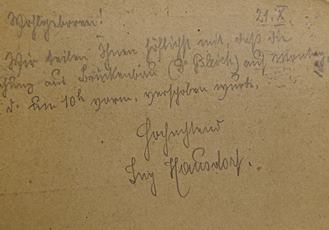 Wohlgeboren! 21. X
Wir teilen Ihnen höflichst mit, daß die
aus Brückenbau (Dr Bleich) auf Montag
d. um 10h vorm. verschoben wurde.
Hochachtend
Ing Hausdorf.